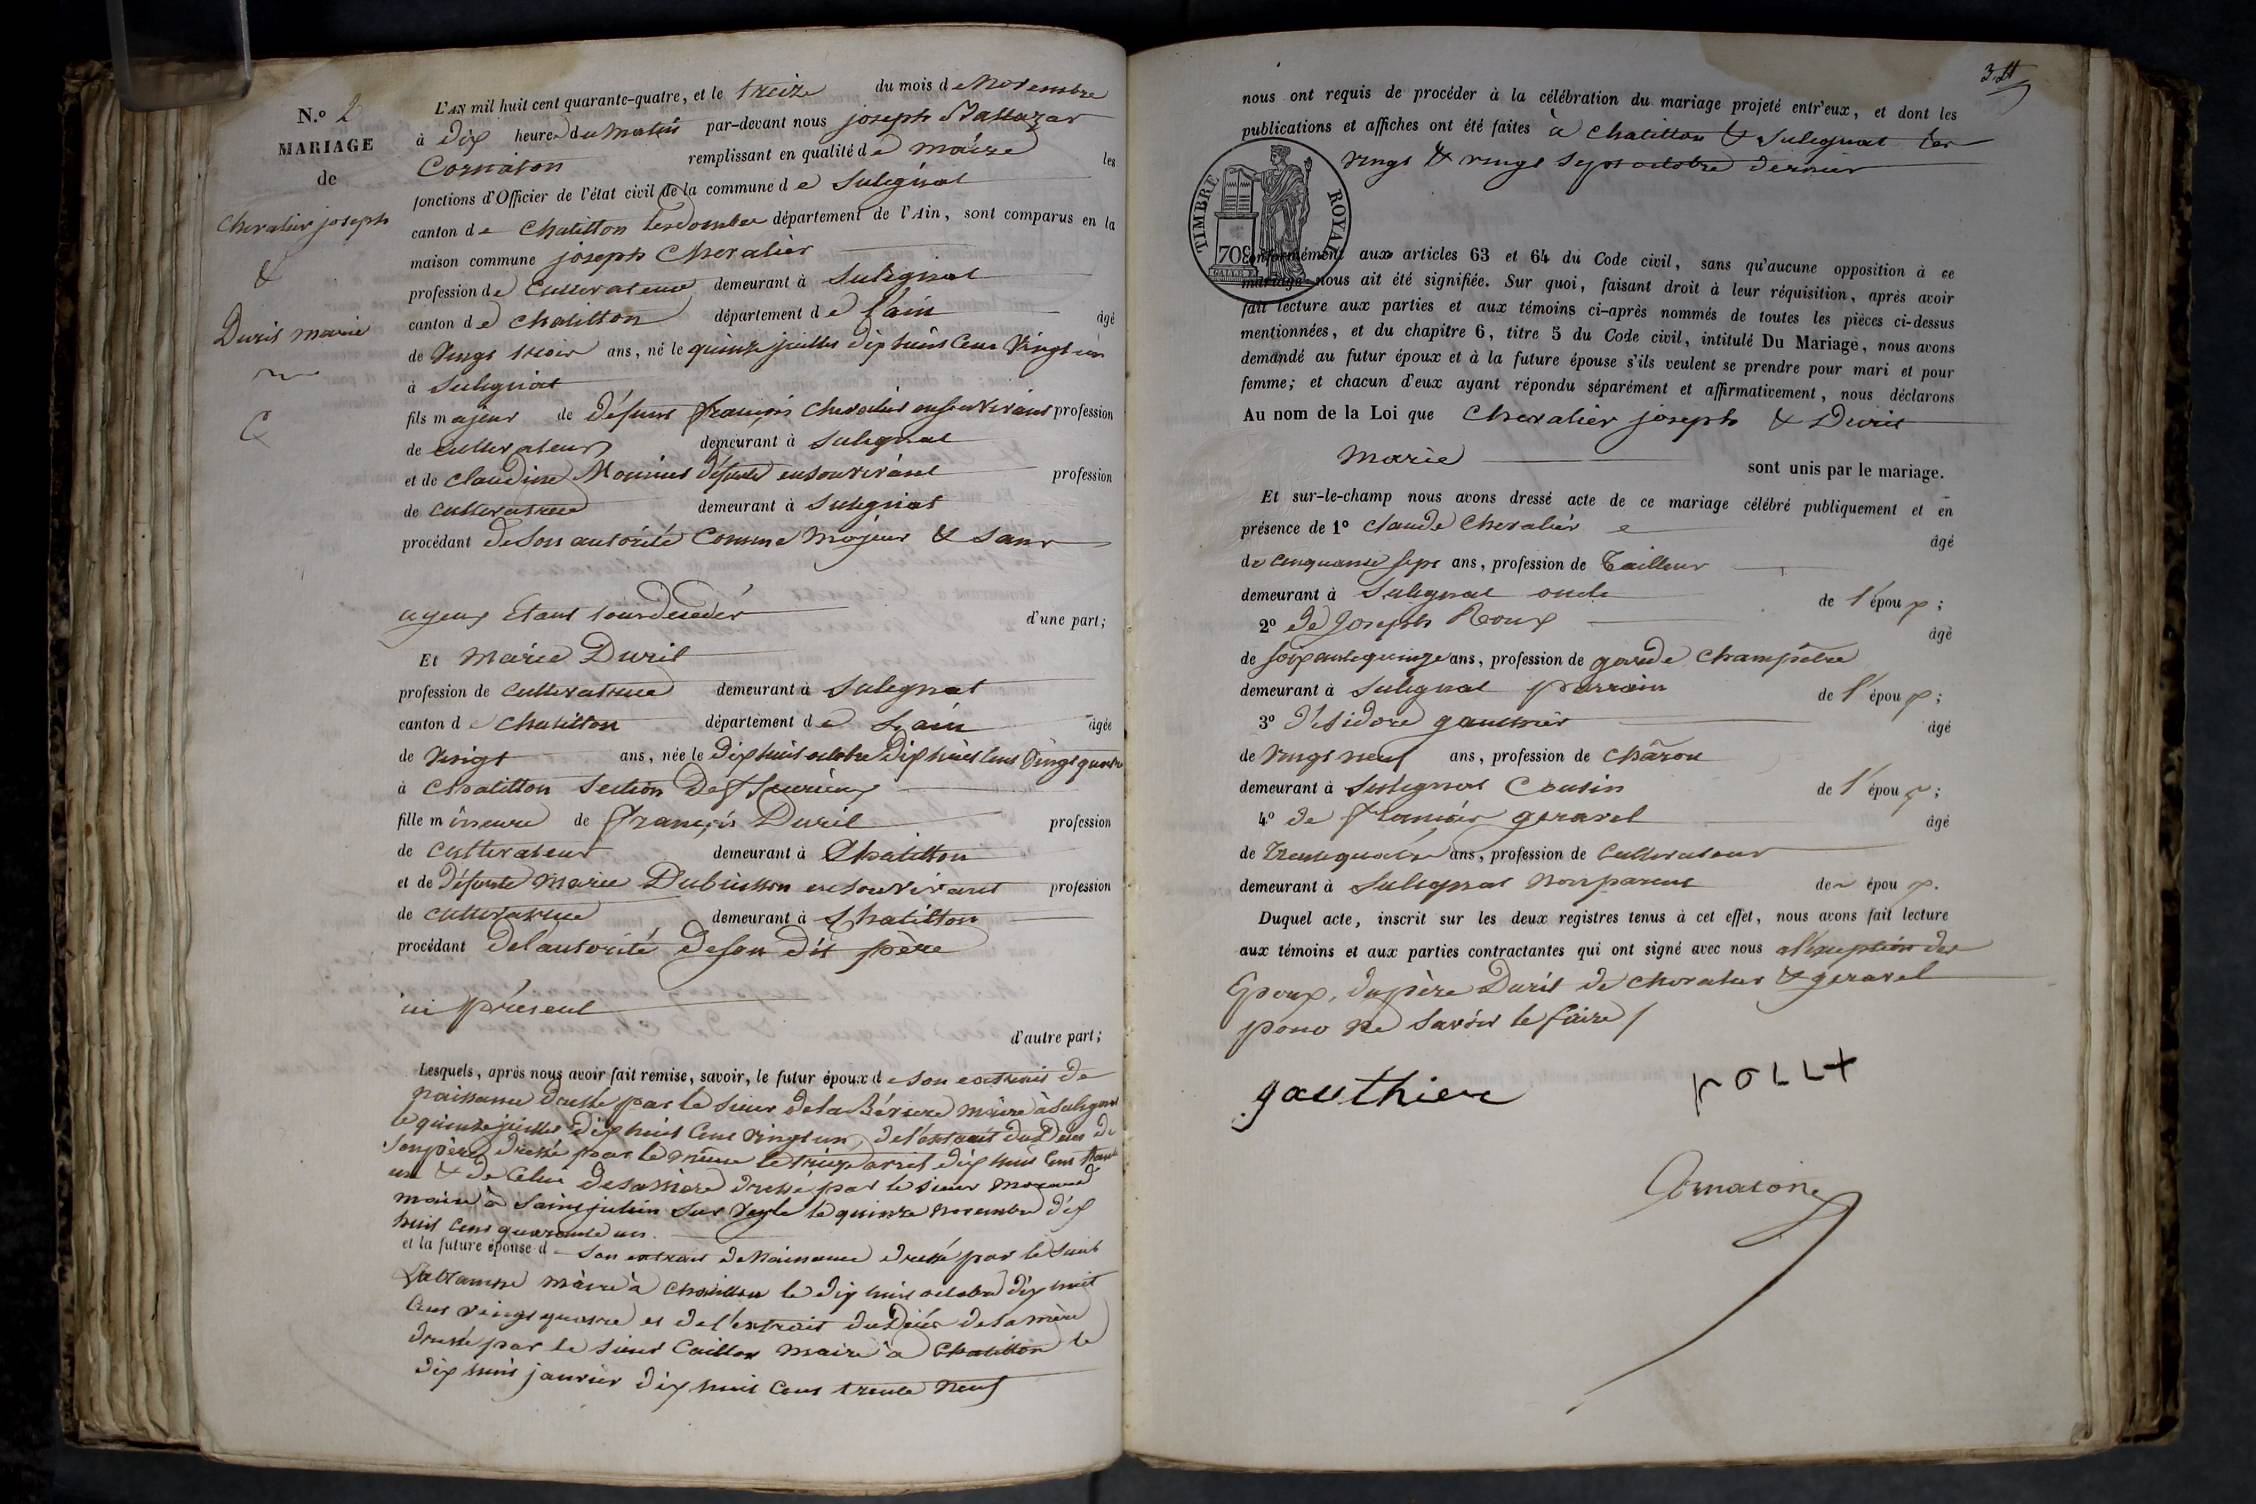 N.º 2
MARIAGE
de
Chevalier joseph
&
Duris marie
L'AN mil huit cent quarante-quatre, et le treize du mois de Novembre
à dix heures du matin par-devant nous joseph Baltazar
Cornaton remplissant en qualité de maire les
fonctions d'Officier de l'état civil de la commune de Sulignat
canton de Chatillon lesdombes département de l'Ain, sont comparus en la
maison commune joseph Chevalier
profession de Cultivateur demeurant à Sulignat
canton de Chatillon département de l'ain âgé
de Vingt trois ans, né le quinze juillet dix huit Cent Vingt un
à Sulignat
fils majeur de défunt françois Chevalier ensonvivant profession
de Cultivateur demeurant à Sulignat
et de Claudine Monnier défunte ensonvivant profession
de cultivatrice demeurant à Sulignat
procédant de son autorité Comme Majeur & Sans
ayeux Etant tous décédés d'une part;
Et Marie Duris
profession de cultivatrice demeurant à Sulignat
canton de Chatillon département de L'ain âgée
de Vingt ans, née le dix huit octobre dix huit Cent Vingt quatre
à Chatillon Section de fleurieux
fille mineure de françois Duris profession
de Cultivateur demeurant à Chatillon
et de défunte Marie Dubuisson ensonvivant profession
de cultivatrice demeurant à Chatillon
procédant de l'autorité de son dit père
ici présent
d'autre part;
Lesquels, après nous avoir fait remise, savoir, le futur époux de son extrait de
naissance dressé par le Sieur de la Bévière Maire à Sulignat
le quinze juillet dix huit Cent Vingt un, de l'extrait du Décès de
son père dressé par le même le treize avril dix huit Cent trente
un & de Celui de sa Mère dressé par le Sieur Morand
maire à Saint julien Sur Veyle le quinze novembre dix
huit Cent quarante un.
et la future épouse de Son extrait de Naissance dressé par le Sieur
maire à Chatillon le dix huit octobre dix huit
Cent vingt quatre et de l'extrait du Décès de sa mère
dressé par le Sieur Caillon Maire à Chatillon le
dix huit janvier dix huit Cent trente neuf
nous ont requis de procéder à la célébration du mariage projeté entr'eux, et dont les
publications et affiches ont été faites à Chatillon & Sulignat les
vingt & vingt Sept octobre dernier
TIMBRE ROYAL
70c
conformément aux articles 63 et 64 du Code civil, sans qu'aucune opposition à ce
mariage nous ait été signifiée. Sur quoi, faisant droit à leur réquisition, après avoir
fait lecture aux parties et aux témoins ci-après nommés de toutes les pièces ci-dessus
mentionnées, et du chapitre 6, titre 5 du Code civil, intitulé Du Mariage, nous avons
demandé au futur époux et à la future épouse s'ils veulent se prendre pour mari et pour
femme; et chacun d'eux ayant répondu séparément et affirmativement, nous déclarons
Au nom de la Loi que Chevalier joseph & Duris
Marie sont unis par le mariage.
Et sur-le-champ nous avons dressé acte de ce mariage célébré publiquement et en
présence de 1º Claude Chevalier âgé
de Cinquante Sept ans, profession de Tailleur
demeurant à Sulignat oncle de l'époux;
2º de Joseph Roux âgé
de soixante quinze ans, profession de garde Champêtre
demeurant à Sulignat parrain de l'époux;
3º d'isidore gauthier âgé
de Vingt neuf ans, profession de Charon
demeurant à Sulignat Cousin de l'époux;
4º de françois geravel âgé
de Trente quatre ans, profession de Cultivateur
demeurant à Sulignat non parent de époux.
Duquel acte, inscrit sur les deux registres tenus à cet effet, nous avons fait lecture
aux témoins et aux parties contractantes qui ont signé avec nous a l'exception des
Epoux, du père Duris de Chevalier & geravel
pour ne Savoir le faire
gauthier
Cornaton